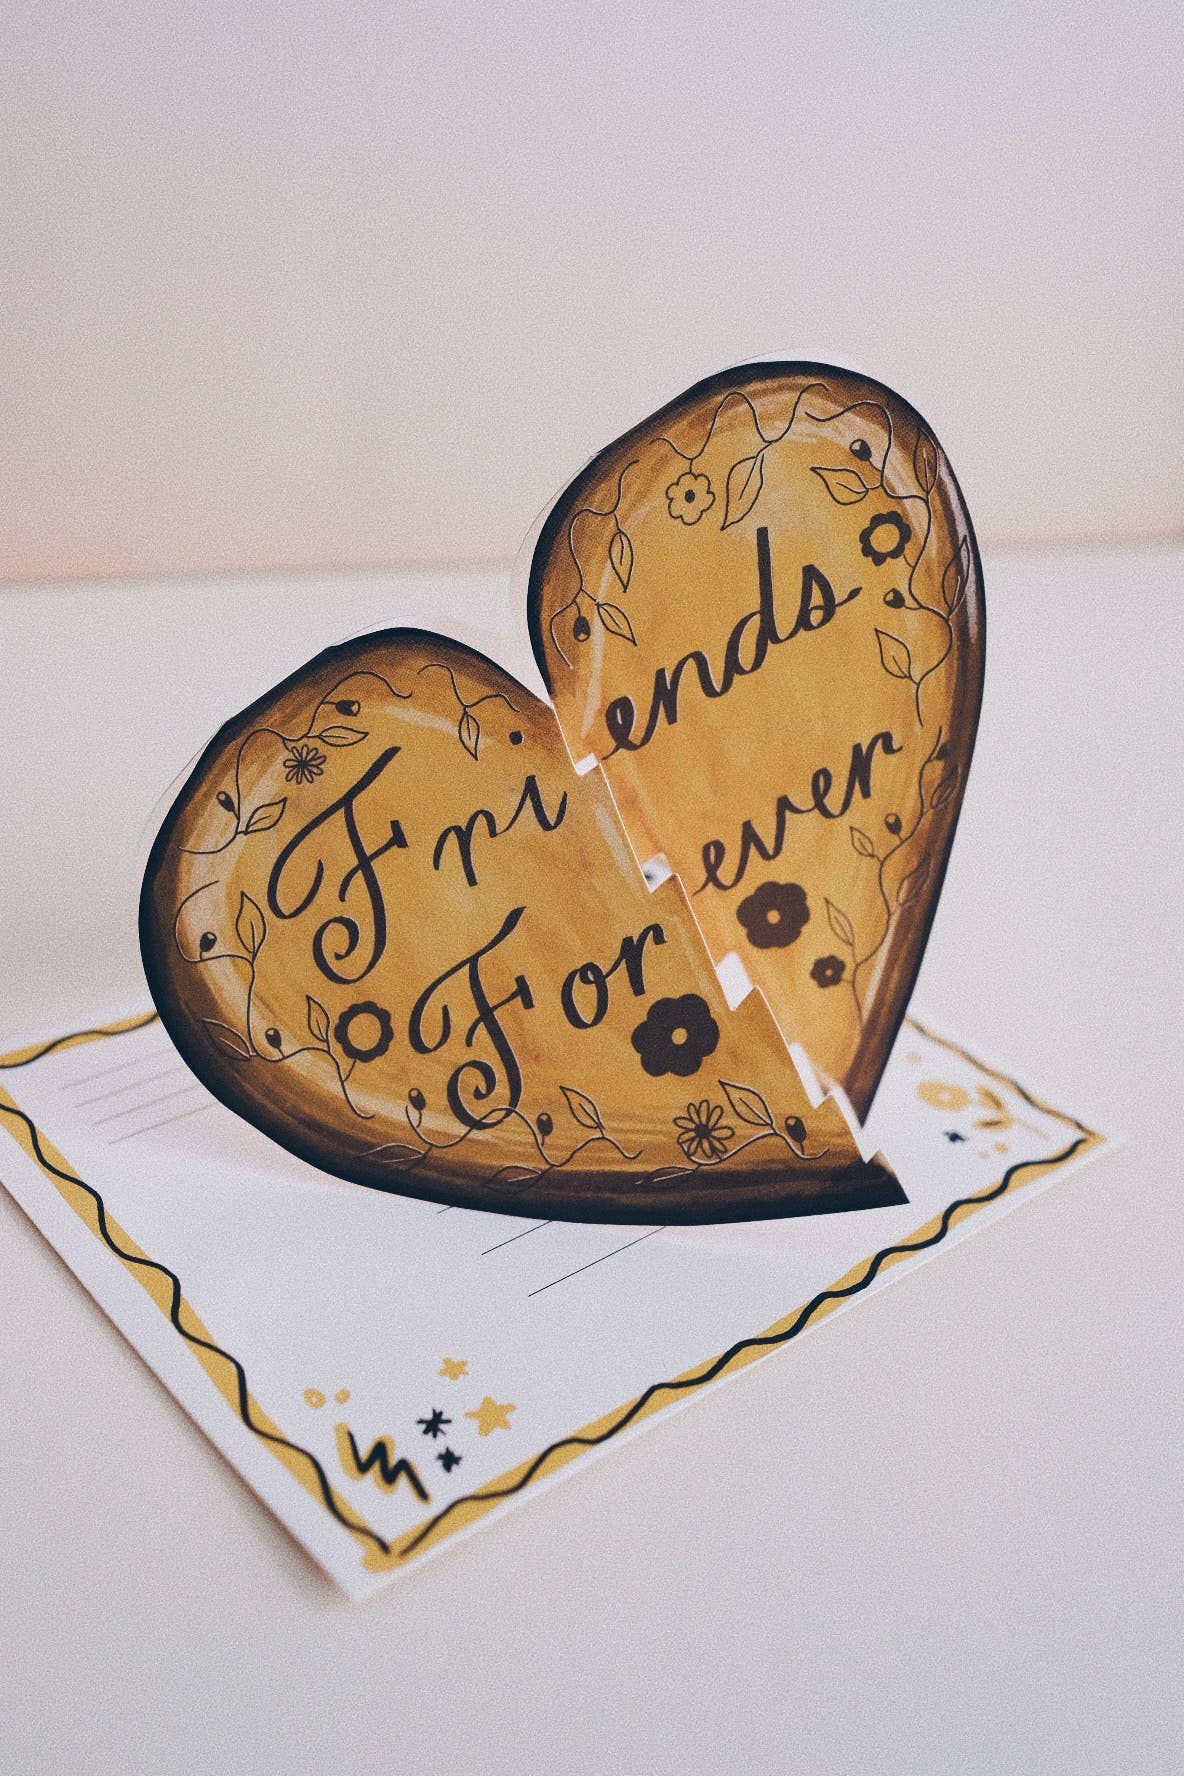 Friends
For ever